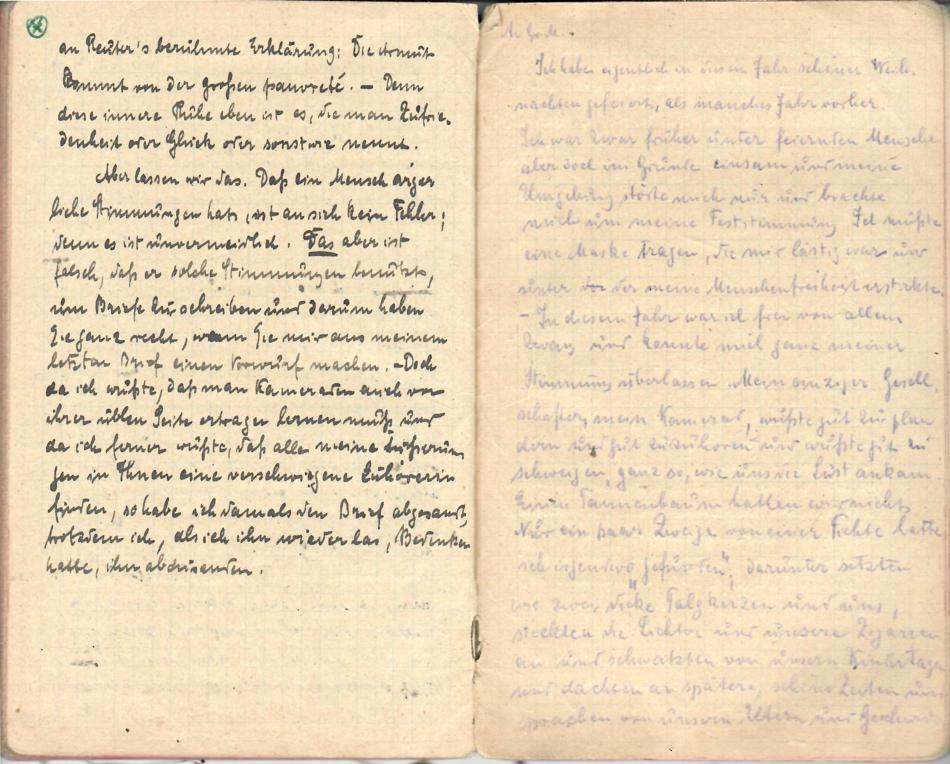 an Reuter's berühmte Erklärung: Die Armut
kommt von der großen pauvreté. — Denn
diese innere Ruhe eben ist es, die man Zufrie-
denheit oder Glück oder sonstwie nennt.
Aber lassen wir das. Daß ein Mensch ärger
liche Stimmungen hat, ist an sich kein Fehler;
denn es ist unvermeidlich. Das aber ist
falsch, daß er solche Stimmungen benützt,
um Briefe zu schreiben und darum haben
Sie ganz recht, wenn Sie mir aus meinem
letzten Brief einen Vorwurf machen. – Doch
da ich wußte, daß man Kameraden auch von
ihrer üblen Seite ertragen lernen muß und
da ich ferner wußte, daß alle meine Äußerun
gen in Ihnen eine verschwiegene Zuhörerin
finden, so habe ich damals den Brief abgesandt,
trotzdem ich, als ich ihn wieder las, Bedenken
hatte, ihn abzusenden.
Ich habe eigentlich in diesem Jahr schöner Weih-
nachten gefeiert, als manches Jahr vorher.
Ich war zwar früher unter feiernden Mensche
aber doch im Grunde einsam und meine
Umgebung störte mich nur und brachte
mich um meine Feststimmung. Ich mußte
eine Maske tragen, die mir lästig war und
unter der meine Menschenfreiheit erstickte.
– In diesem Jahr war ich frei von allem
Zwang und konnte mich ganz meiner
Stimmung überlassen. Mein einziger Gesell
schafter, mein Kamerad, wußte gut zu plau
dern und gut zuzuhören und wußte gut zu
schweigen, ganz so, wie uns die Lust ankam.
Einen Tannenbaum hatten wir nicht.
Nur ein paar Zweige von einer Fichte hatte
ich irgendwo „gefunden", darunter setzten
wir zwei dicke Talgkerzen und uns,
steckten die Lichter und unsere Zigarren
an und schwatzten von unsern Kindertagen
und dachten an spätere, schöne Zeiten und
sprachen von unsern Eltern und Geschwis